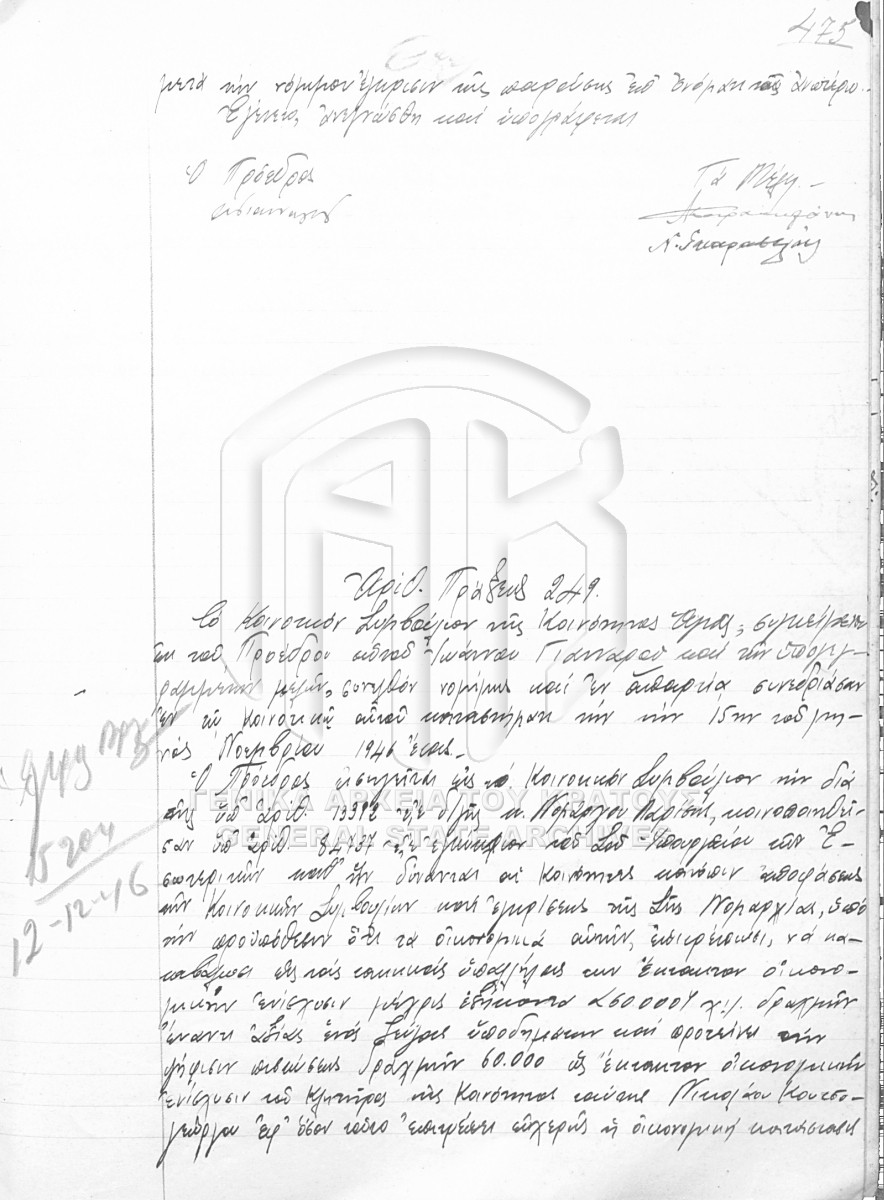 475
μετά την νόμιμον έγκρισιν της παρούσης επ' ονόματι της ανωτέρω.
Εγένετο, ανεγνώσθη και υπογράφεται
Ο Πρόεδρος
Τά Μέλη. –
Αριθ. Πράξεως 249.
Το Κοινοτικόν Συμβούλιον της Κοινότητος Ημών, συγκείμενον
εκ του Προέδρου αυτού Ιωάννου Γιανναρού και των υπογε-
γραμμένων μελών, συνελθόν νομίμως και εν απαρτία συνεδρίασαν
εν τω Κοινοτικώ αυτού καταστήματι την την 15ην του μη-
νός Νοεμβρίου 1946 έτους. –
Ο Πρόεδρος εισηγείται εις το Κοινοτικόν Συμβούλιον την διά
της υπ' αριθ. κ. Νομάρχου Λαρίσης, κοινοποιηθεί-
σαν υπ' αριθ. 84737 εγκύκλιον του Σού Υπουργείου των Ε-
σωτερικών καθ' ην δύνανται αι Κοινότητες κατόπιν αποφάσεως
των Κοινοτικών Συμβουλίων και εγκρίσεως της Σής Νομαρχίας, υπό
την προϋπόθεσιν ότι τα οικονομικά αυτών, επιτρέπωσι, να κα-
ταβάλωσι εις τους τακτικούς υπαλλήλους των έκτακτον οικονο-
μικήν ενίσχυσιν μέχρις εξήκοντα χιλ. δραχμών
έναντι αξίας ενός ζεύγους υποδημάτων και προτείνει την
ψήφισιν πιστώσεως δραχμών 60.000 ως έκτακτον οικονομικήν
ενίσχυσιν του Κλητήρος της Κοινότητος ταύτης Νικολάου Κουτσο-
γεώργου εφ' όσον τούτο επιτρέπει ευχερώς η οικονομική κατάστασις
12-12-46
ΓΕΝΙΚΑ ΑΡΧΕΙΑ ΤΟΥ ΚΡΑΤΟΥΣ
GENERAL STATE ARCHIVES